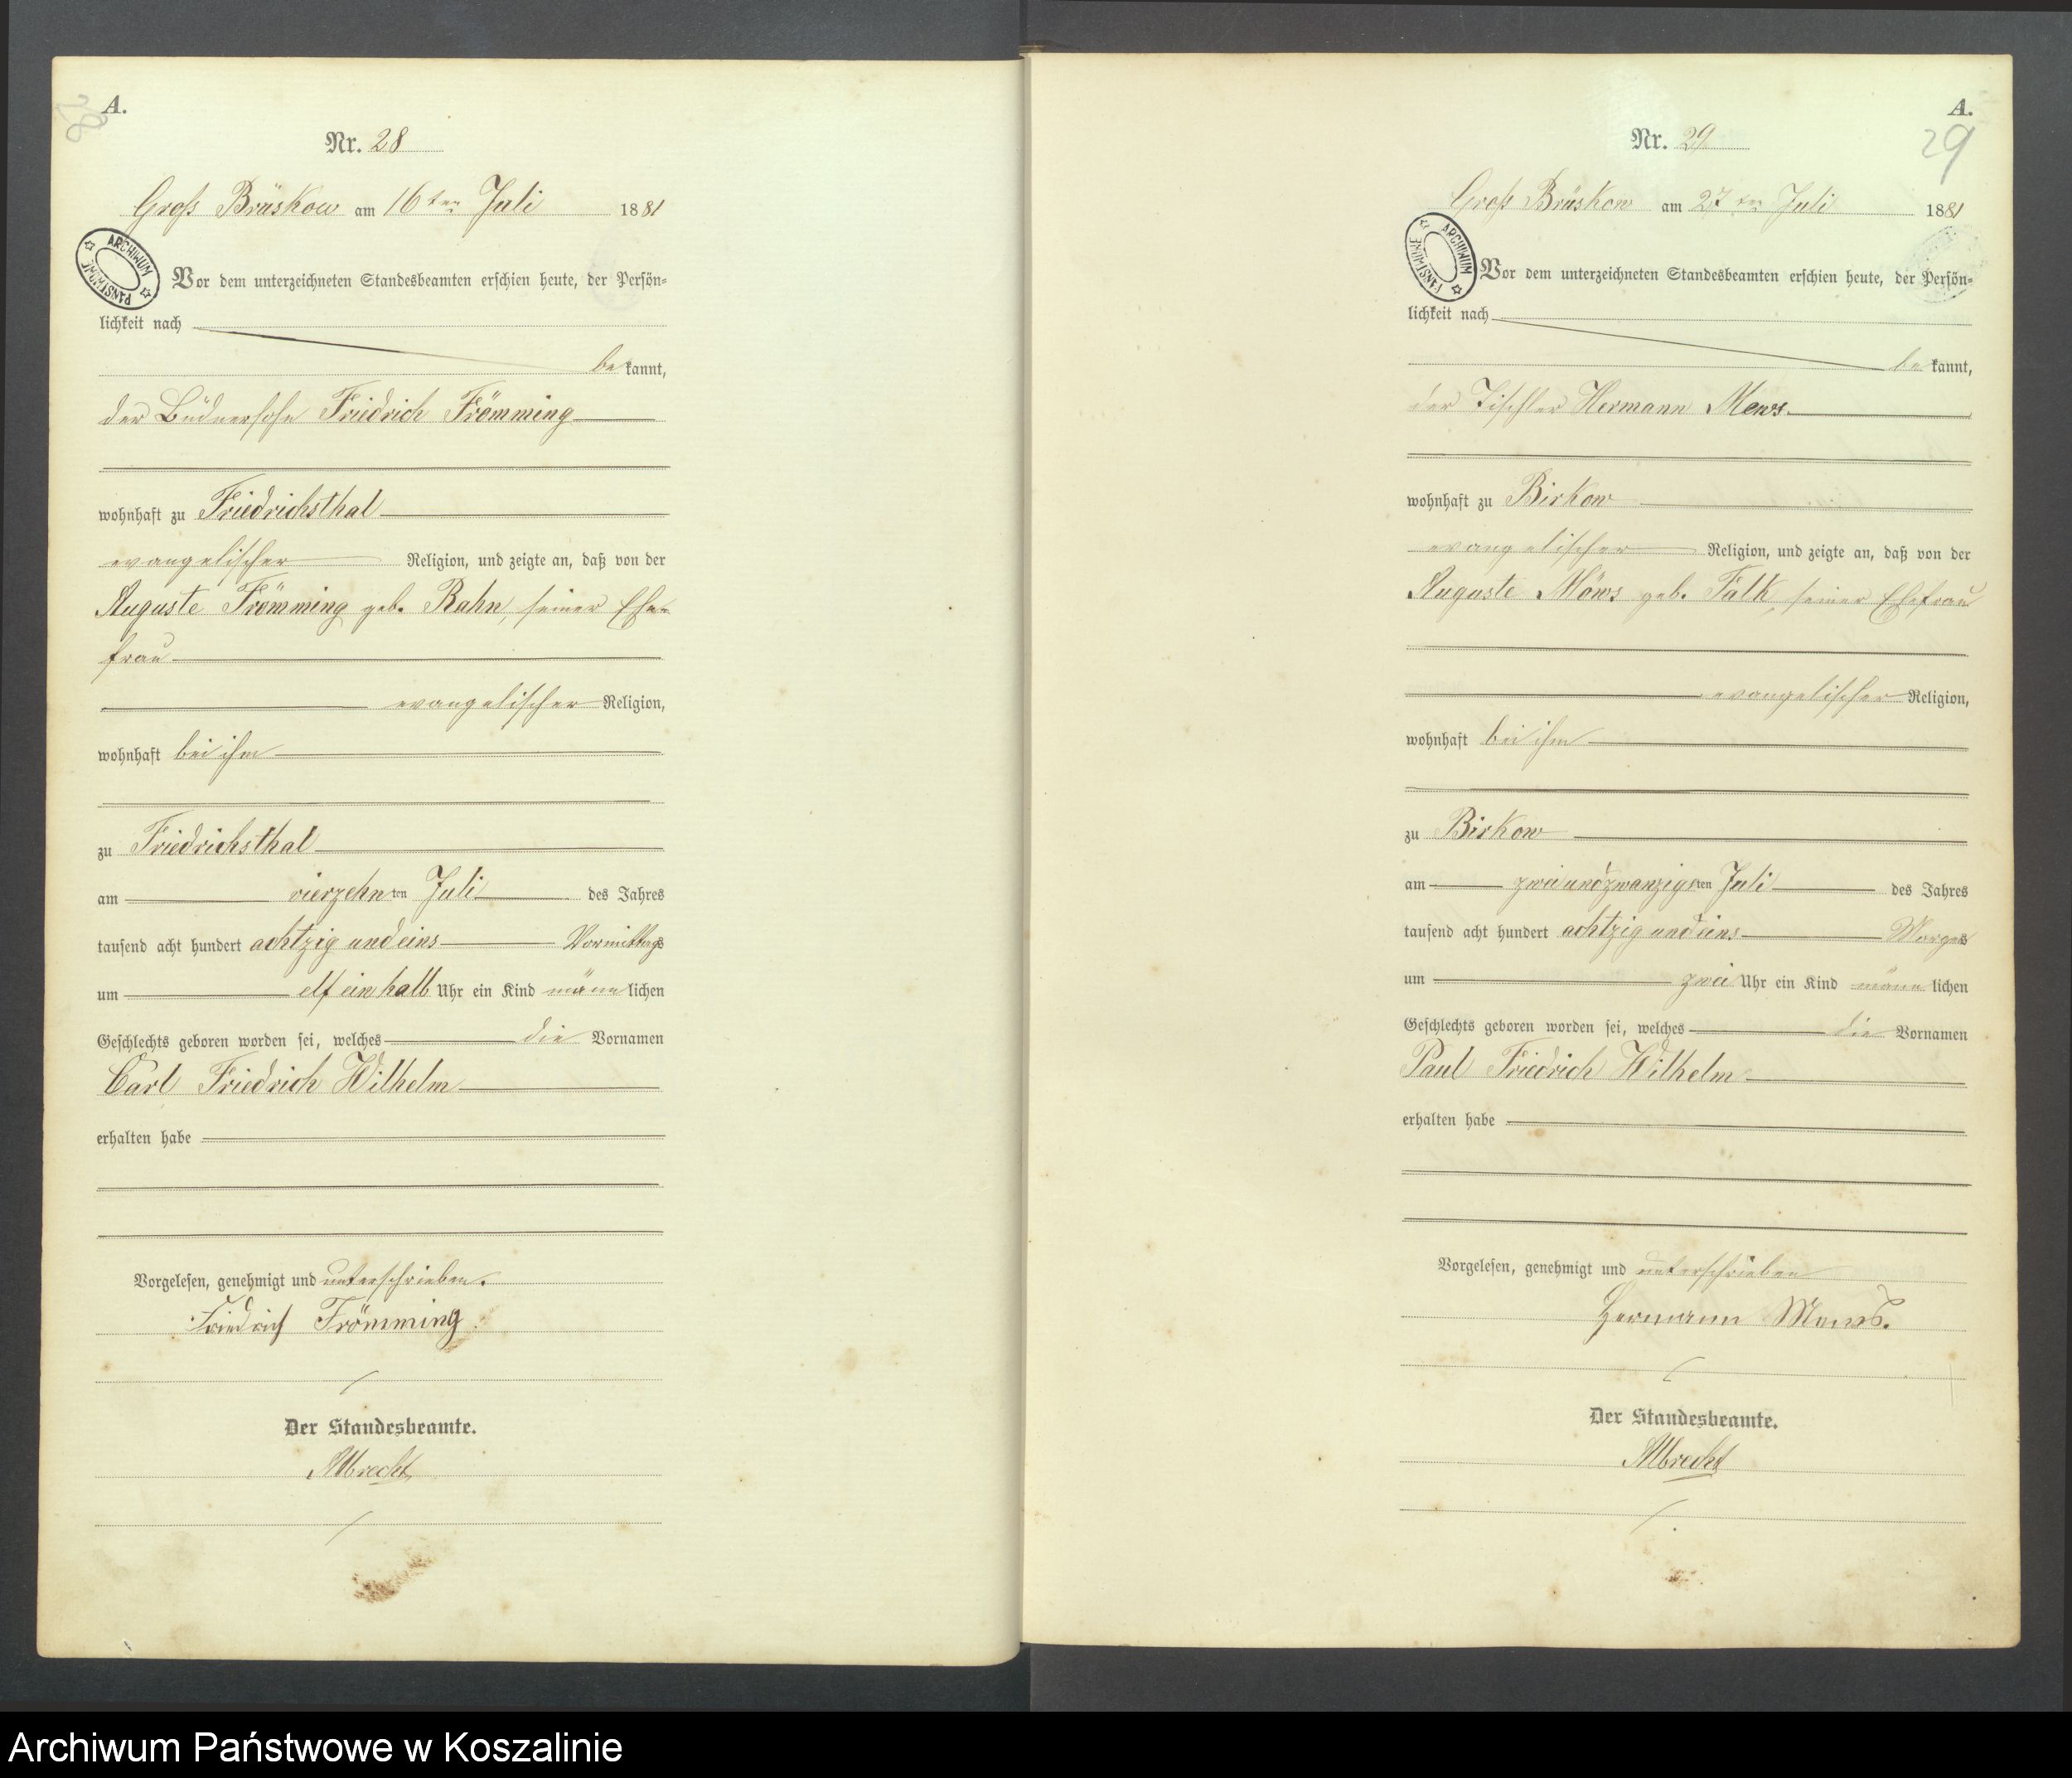 28
A.
Nr. 28
Groß Brüskow am 16ten Juli 1881
ARCHIWUM PAŃSTWOWE
Vor dem unterzeichneten Standesbeamten erschien heute, der Persön-
lichkeit nach
bekannt,
der Büdnersohn Friedrich Frömming
wohnhaft zu Friedrichsthal
evangelischer Religion, und zeigte an, daß von der
Auguste Frömming geb. Rahn, seiner Ehe-
frau
evangelischer Religion,
wohnhaft bei ihm
zu Friedrichsthal
am vierzehnten Juli des Jahres
tausend acht hundert achtzig und eins Vormittags
um elf ein halb Uhr ein Kind männlichen
Geschlechts geboren worden sei, welches die Vornamen
Carl Friedrich Wilhelm
erhalten habe
Vorgelesen, genehmigt und unterschrieben.
Friedrich Frömming
Der Standesbeamte.
Albrecht
A.
29
Nr. 29
Groß Brüskow am 27ten Juli 1881
ARCHIWUM PAŃSTWOWE
Vor dem unterzeichneten Standesbeamten erschien heute, der Persön-
lichkeit nach
bekannt,
der Tischler Hermann Mews
wohnhaft zu Birkow
evangelischer Religion, und zeigte an, daß von der
Auguste Möws geb. Falk, seiner Ehefrau
evangelischer Religion,
wohnhaft bei ihm
zu Birkow
am zwei und zwanzigsten Juli des Jahres
tausend acht hundert achtzig und eins Morgens
um zwei Uhr ein Kind männlichen
Geschlechts geboren worden sei, welches die Vornamen
Paul Friedrich Wilhelm
erhalten habe
Vorgelesen, genehmigt und unterschrieben
Hermann Mews.
Der Standesbeamte.
Albrecht
Archiwum Państwowe w Koszalinie